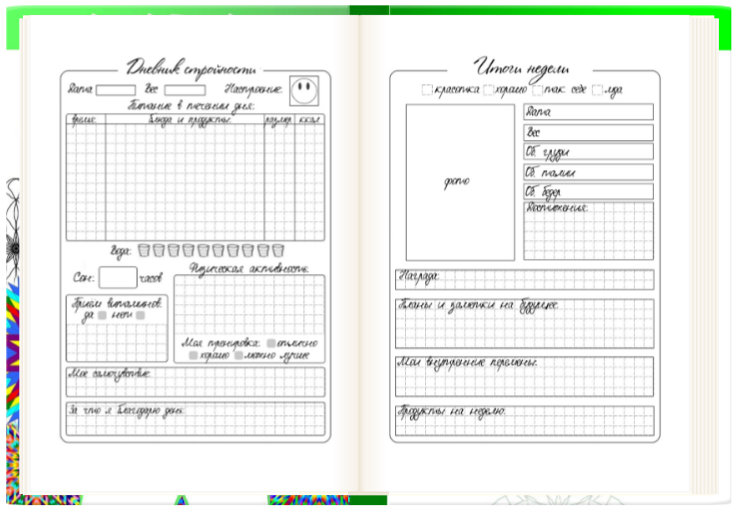 Дневник стройности
Дата Вес Настроение
Питание в течении дня:
время Блюда и продукты размер ккал
Вода:
Сон: часов
Физическая активность:
Приём витаминов:
да нет
Моя тренировка: отлично
хорошо можно лучше
Мое самочувствие:
За что я благодарю день:
Итоги недели
красотка хорошо так себе мда
фото
Дата
Вес
Об. груди
Об. талии
Об. бедер
Достижения:
Награда:
Планы и заметки на будущее:
Мои внутренние перемены:
Продукты на неделю: